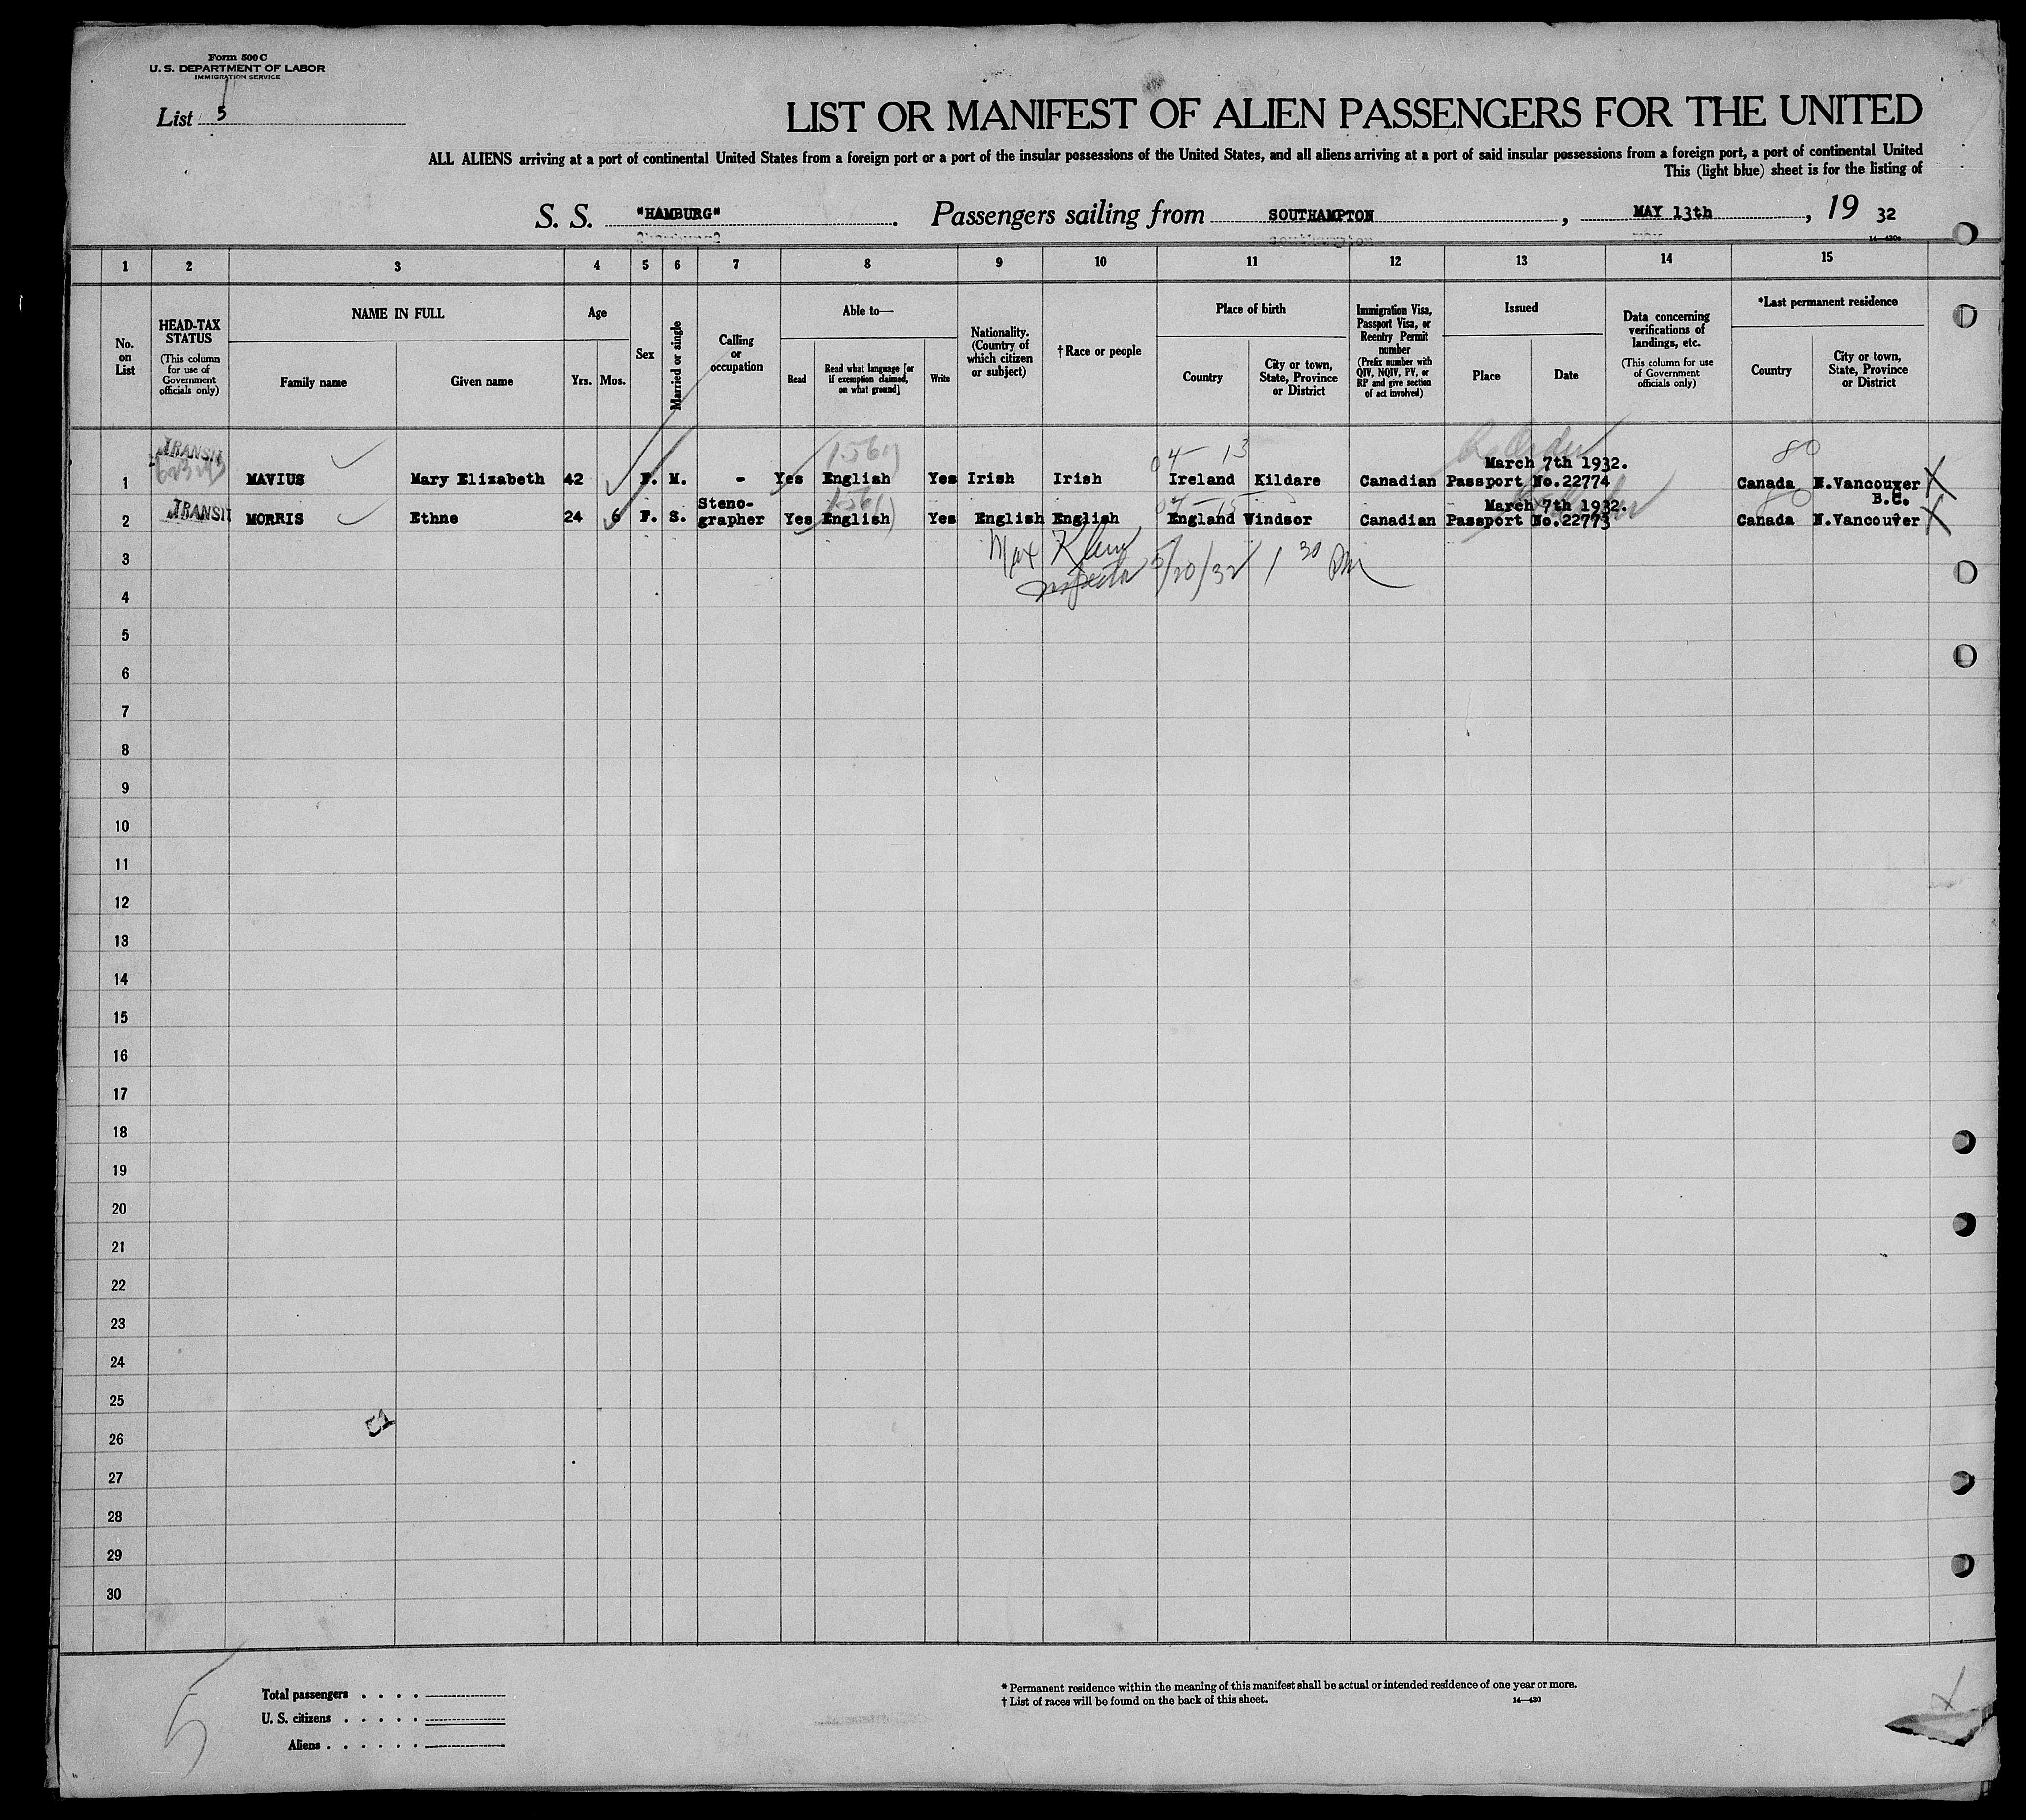 Form 500 C
U. S. DEPARTMENT OF LABOR
IMMIGRATION SERVICE
List 5
LIST OR MANIFEST OF ALIEN PASSENGERS FOR THE UNITED
ALL ALIENS arriving at a port of continental United States from a foreign port or a port of the insular possessions of the United States, and all aliens arriving at a port of said insular possessions from a foreign port, a port of continental United
This (light blue) sheet is for the listing of
S. S. "HAMBURG". Passengers sailing from SOUTHAMPTON, MAY 13th, 19 32
14—430a
1 2 3 4 5 6 7 8 9 10 11 12 13 14 15
No. on List
HEAD-TAX STATUS (This column for use of Government officials only)
NAME IN FULL
Family name Given name
Age
Yrs. Mos.
Sex
Married or single
Calling or occupation
Able to—
Read Read what language [or if exemption claimed, on what ground] Write
Nationality. (Country of which citizen or subject)
†Race or people
Place of birth
Country City or town, State, Province or District
Immigration Visa, Passport Visa, or Reentry Permit number (Prefix number with QIV, NQIV, PV, or RP and give section of act involved)
Issued
Place Date
Data concerning verifications of landings, etc. (This column for use of Government officials only)
*Last permanent residence
Country City or town, State, Province or District
TRANSIT 04-13 80
March 7th 1932.
1 MAVIUS Mary Elizabeth 42 F. M. - Yes English Yes Irish Irish Ireland Kildare Canadian Passport No.22774 Canada N.Vancouver X
TRANSIT Steno- 04-15 March 7th 1932. 80 B.C.
2 MORRIS Ethne 24 6 F. S. grapher Yes English Yes English English England Windsor Canadian Passport No.22773 Canada N.Vancouver X
3 Max Klein
4 Inspector 5/20/32 1 30 PM
5
6
7
8
9
10
11
12
13
14
15
16
17
18
19
20
21
22
23
24
25
26
27
28
29
30
5
Total passengers . . . .
U. S. citizens . . . . .
Aliens . . . . . .
* Permanent residence within the meaning of this manifest shall be actual or intended residence of one year or more.
† List of races will be found on the back of this sheet. 14—430
X